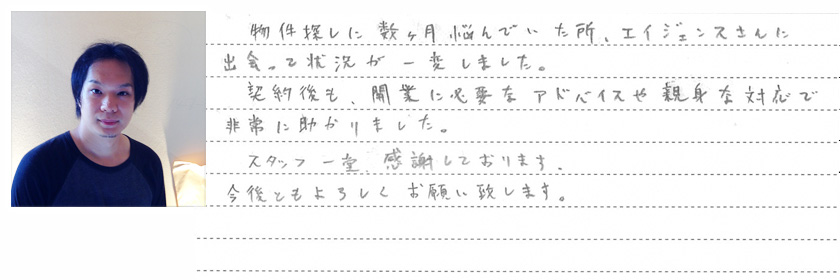 物件探しに数ヶ月悩んでいた所、エイジェンスさんに
出会って状況が一変しました。
契約後も、開業に必要なアドバイスや親身な対応で
非常に助かりました。
スタッフ一堂、感謝しております、
今後ともよろしくお願い致します。